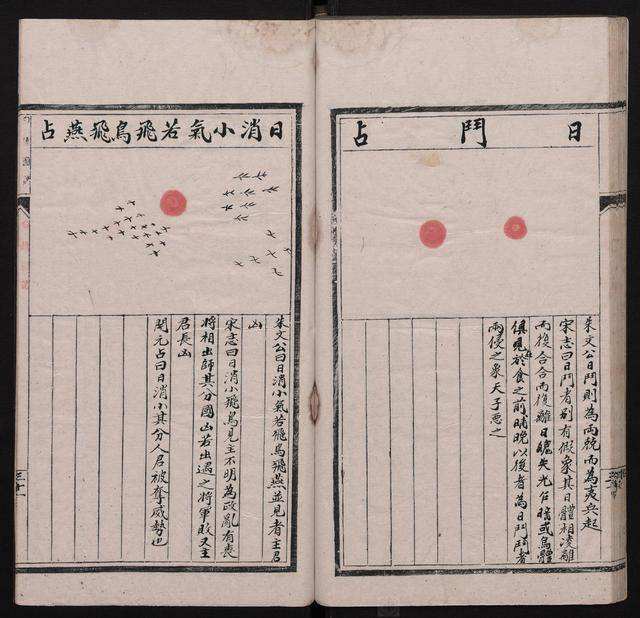 日鬥占
朱文公曰日鬥則為兩競而為夷兵起
宋志曰日鬥者別有假象其日體相凌離
而復合合而復離日魄失光乍暗或烏體
俱見於食之前晡晚以後者為日鬥鬥者
兩侵之象天子惡之
日消小氣若飛鳥飛燕占
朱文公曰日消小氣若飛鳥飛燕並見者主君
凶
宋志曰日消小飛鳥見主不明為政亂有喪
將相出師其分國凶若出遇之將軍敗又主
君長凶
開元占曰日消小其分人君被奪威勢也
三十一